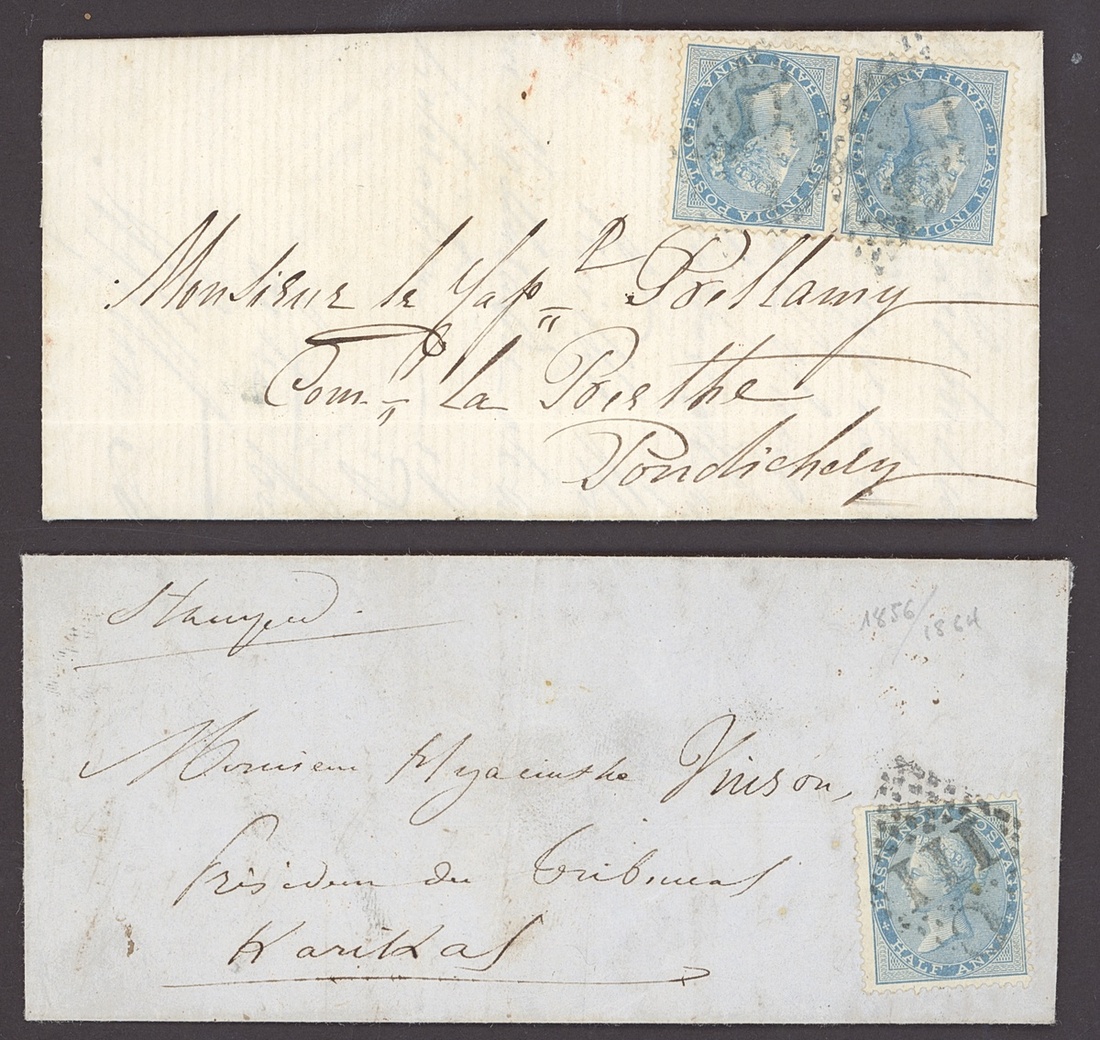 EAST INDIA POSTAGE
HALF ANNA
EAST INDIA POSTAGE
HALF ANNA
Monsieur le
Com. La Perthe
Pondichery
Stamped
1856/1864
Monsieur Hyacinthe Vinson,
Président du Tribunal
Karikal
EAST INDIA POSTAGE
HALF ANNA